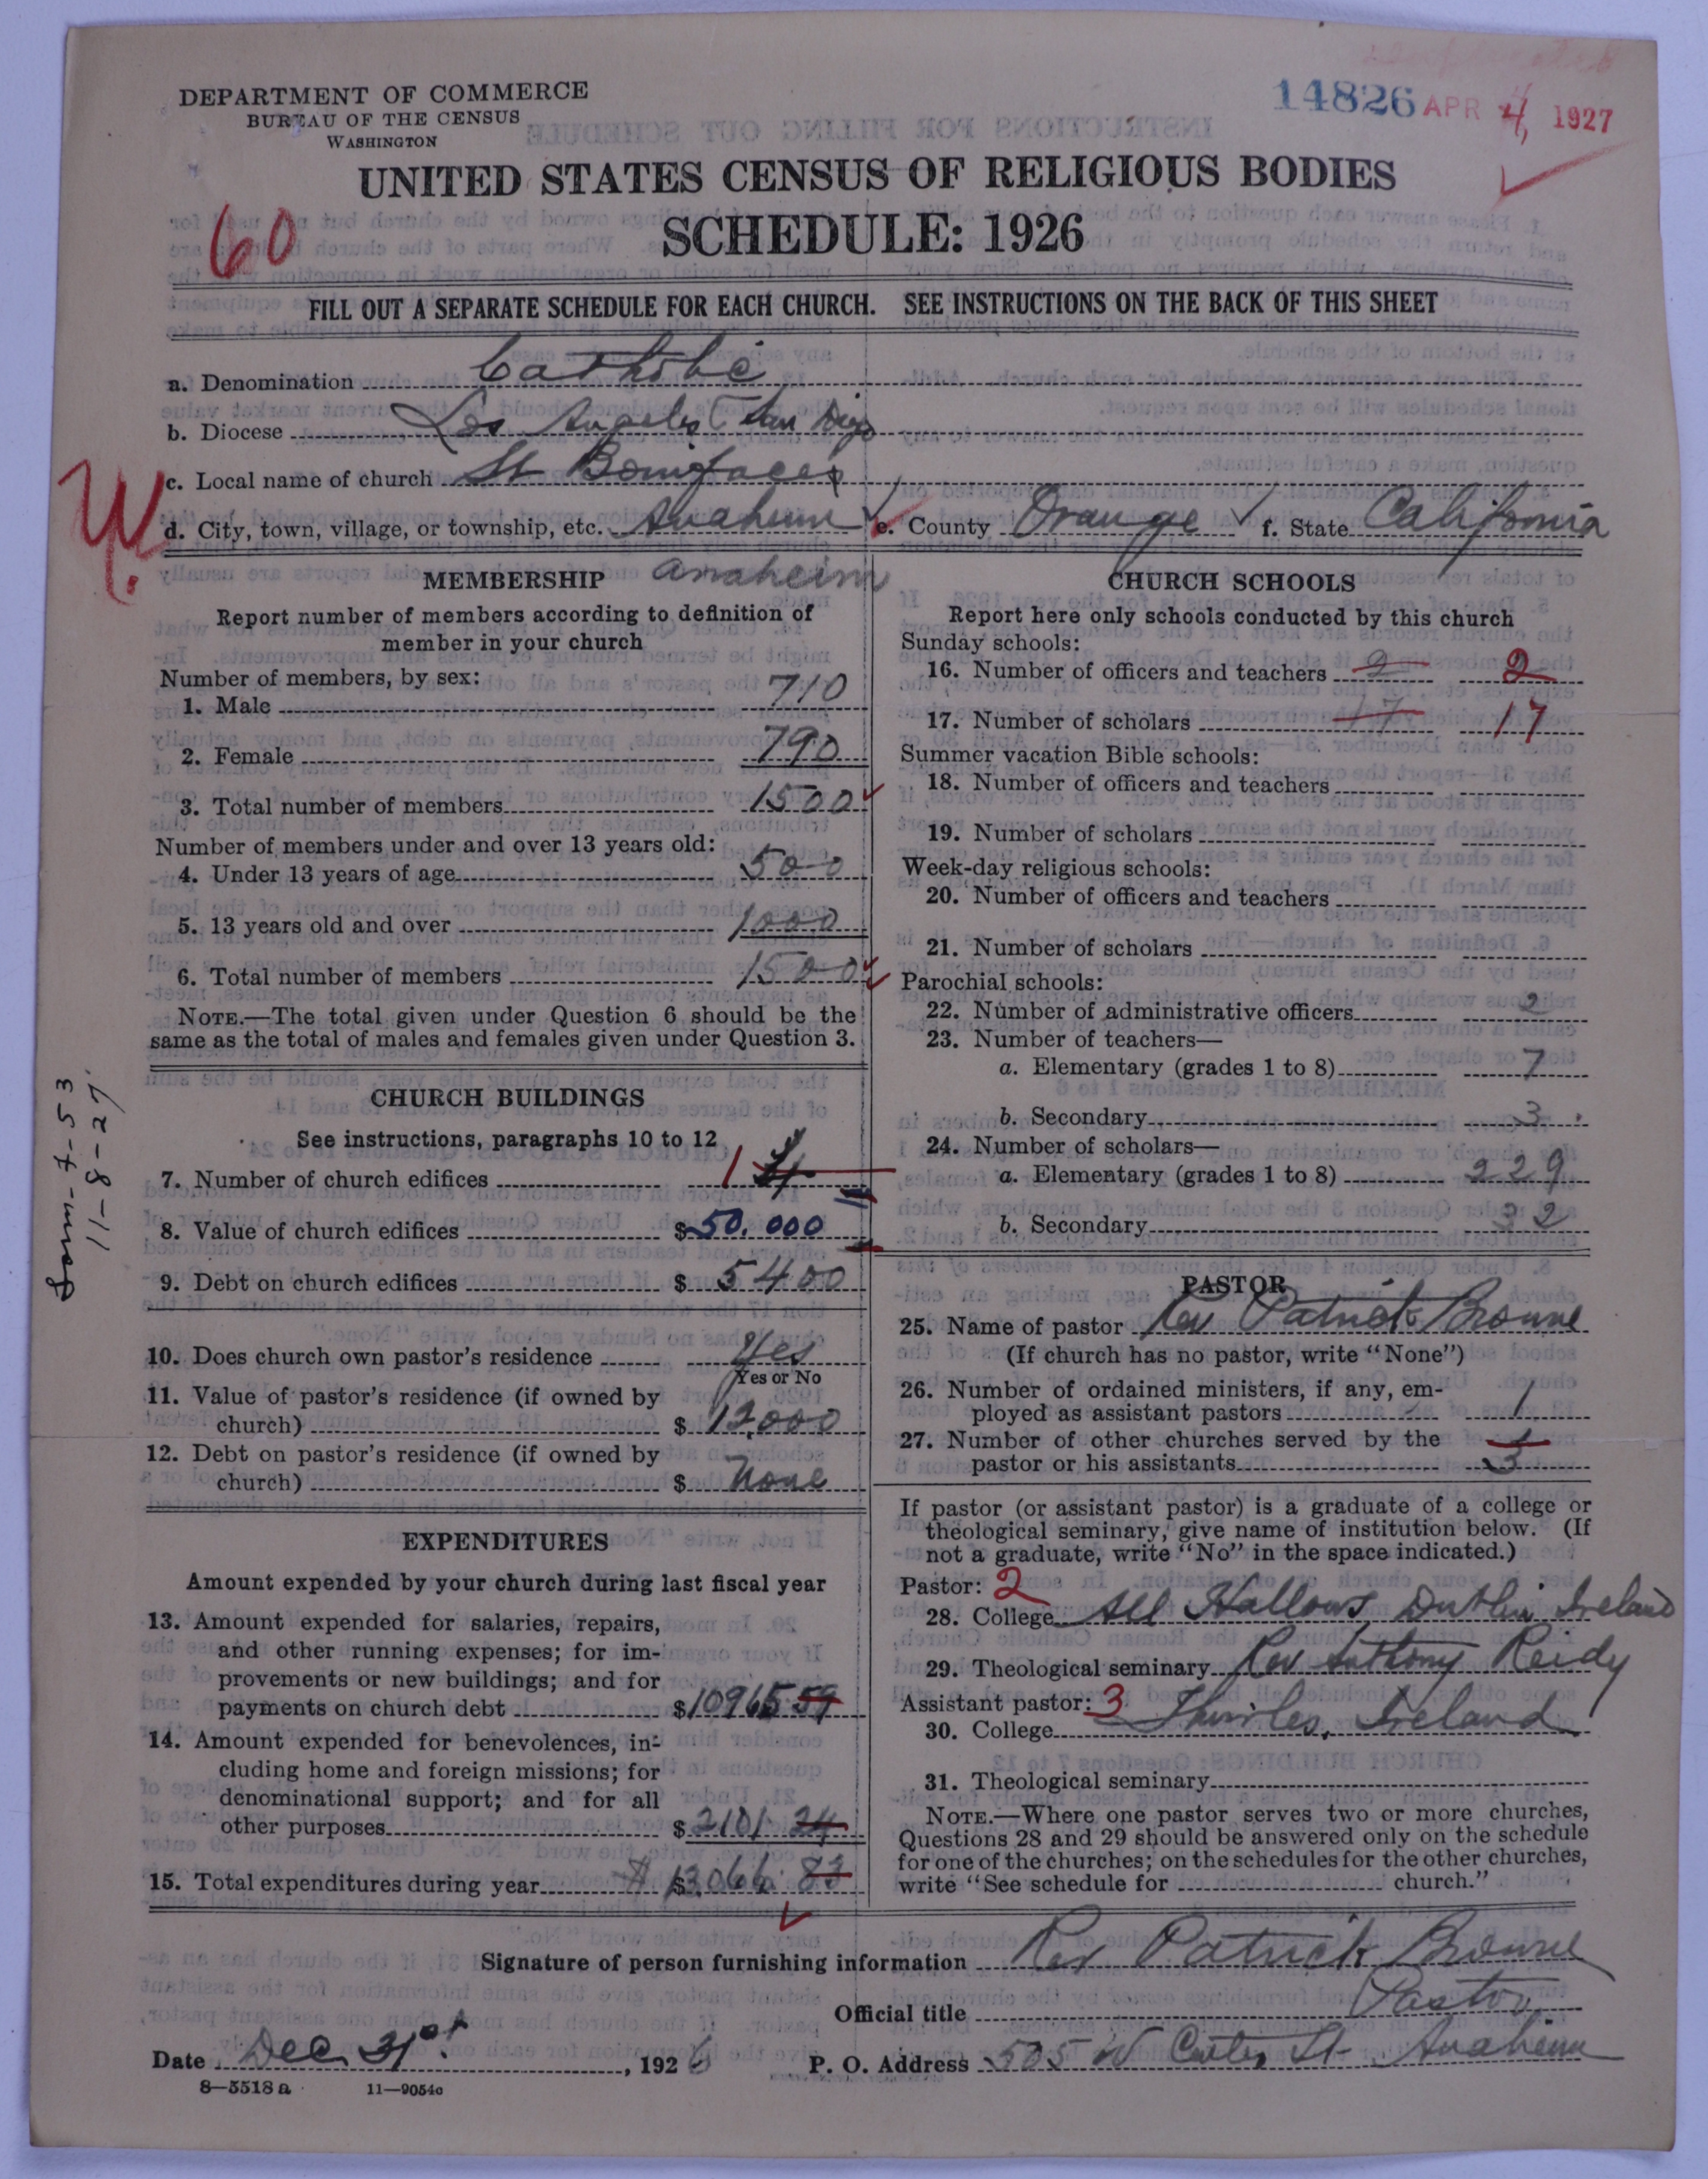 DEPARTMENT OF COMMERCE
BUREAU OF THE CENSUS
WASHINGTON
14826 APR 4, 1927
UNITED STATES CENSUS OF RELIGIOUS BODIES
60
SCHEDULE: 1926
FILL OUT A SEPARATE SCHEDULE FOR EACH CHURCH. SEE INSTRUCTIONS ON THE BACK OF THIS SHEET
a. Denomination Catholic
b. Diocese Los Angeles & San Diego
c. Local name of church St Bonifaces
W.
d. City, town, village, or township, etc. Anaheim e. County Orange f. State California
MEMBERSHIP Anaheim
Report number of members according to definition of
member in your church
Number of members, by sex:
1. Male 710
2. Female 790
3. Total number of members 1500
Number of members under and over 13 years old:
4. Under 13 years of age 500
5. 13 years old and over 1000
6. Total number of members 1500
NOTE.—The total given under Question 6 should be the
same as the total of males and females given under Question 3.
CHURCH BUILDINGS
See instructions, paragraphs 10 to 12
7. Number of church edifices 1 4
8. Value of church edifices $50.000
9. Debt on church edifices $5400
10. Does church own pastor's residence Yes
Yes or No
11. Value of pastor's residence (if owned by
church) $12,000
12. Debt on pastor's residence (if owned by
church) $None
EXPENDITURES
Amount expended by your church during last fiscal year
13. Amount expended for salaries, repairs,
and other running expenses; for im-
provements or new buildings; and for
payments on church debt $10965 59
14. Amount expended for benevolences, in-
cluding home and foreign missions; for
denominational support; and for all
other purposes $2101 24
15. Total expenditures during year $ $13066 83
11-8-27
CHURCH SCHOOLS
Report here only schools conducted by this church
Sunday schools:
16. Number of officers and teachers 2 2
17. Number of scholars 17 17
Summer vacation Bible schools:
18. Number of officers and teachers
19. Number of scholars
Week-day religious schools:
20. Number of officers and teachers
21. Number of scholars
Parochial schools:
22. Number of administrative officers 2
23. Number of teachers—
a. Elementary (grades 1 to 8) 7
b. Secondary 3
24. Number of scholars—
a. Elementary (grades 1 to 8) 229
b. Secondary 32
PASTOR
25. Name of pastor Rev Patrick Browne
(If church has no pastor, write "None")
26. Number of ordained ministers, if any, em-
ployed as assistant pastors 1
27. Number of other churches served by the
pastor or his assistants 3
If pastor (or assistant pastor) is a graduate of a college or
theological seminary, give name of institution below. (If
not a graduate, write "No" in the space indicated.)
Pastor: 2
28. College All Hallows Dublin Ireland
29. Theological seminary Rev Anthony Reidy
Assistant pastor: 3
30. College Thurles, Ireland
31. Theological seminary
NOTE.—Where one pastor serves two or more churches,
Questions 28 and 29 should be answered only on the schedule
for one of the churches; on the schedules for the other churches,
write "See schedule for church."
Signature of person furnishing information Rev Patrick Browne
Official title Pastor
Date Dec 31st, 1926 P. O. Address 505 W Center St Anaheim
8—5518a 11—9054c